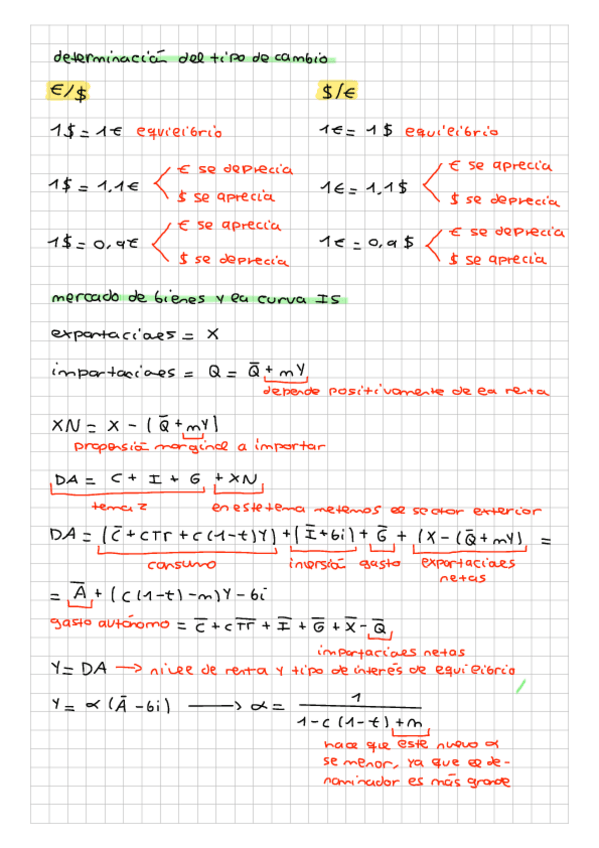 determinación del tipo de cambio
€/$
$/€
1$ = 1€ equilibrio
1€ = 1$ equilibrio
1$ = 1,1€
€ se deprecia
$ se aprecia
1€ = 1,1$
€ se aprecia
$ se deprecia
1$ = 0,9€
€ se aprecia
$ se deprecia
1€ = 0,9$
€ se deprecia
$ se aprecia
mercado de bienes y la curva IS
exportaciones = X
importaciones = Q = Q̄ + mY
depende positivamente de la renta
XN = X - (Q̄ + mY)
propensión marginal a importar
DA = C + I + G + XN
tema 2
en este tema metemos el sector exterior
DA = (C̄ + cTr + c(1-t)Y) + (Ī + bi) + Ḡ + (X - (Q̄ + mY)) =
consumo
inversión
gasto
exportaciones
netas
= Ā + (c(1-t) - m)Y - bi
gasto autónomo = C̄ + cT̄r̄ + Ī + Ḡ + X̄ - Q̄
importaciones netas
Y = DA → nivel de renta y tipo de interés de equilibrio
Y = α(Ā - bi) → α = 1
1 - c(1-t) + m
hace que este nuevo α
se menor, ya que el de-
nominador es más grande